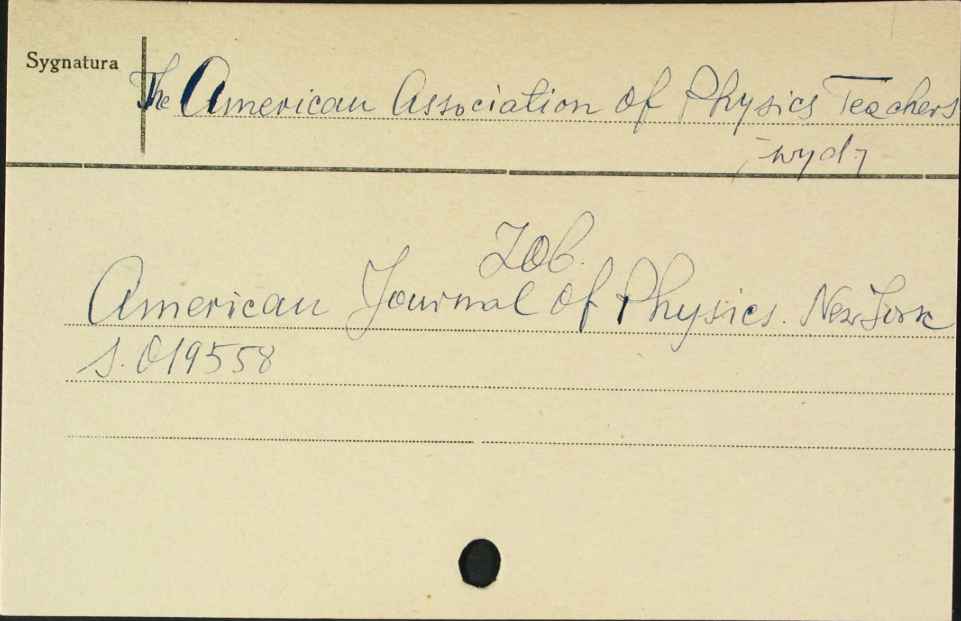 Sygnatura
The American Association of Physics Teachers
-wyd-
Zob.
American Journal of Physics. New York
S. 019558